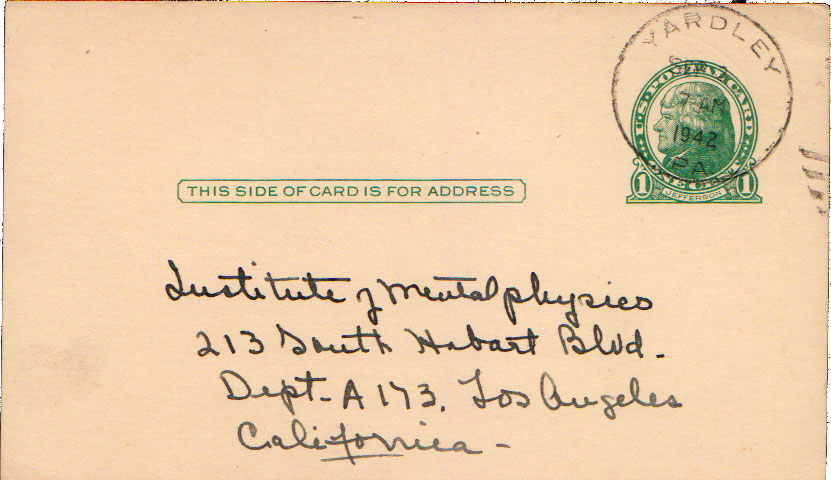 YARDLEY
7 AM
1942
PA.
U.S. POSTAL CARD
ONE CENT
1 JEFFERSON 1
THIS SIDE OF CARD IS FOR ADDRESS
Institute of Mentalphysics
213 South Hobart Blvd.
Dept. A 173, Los Angeles
California -